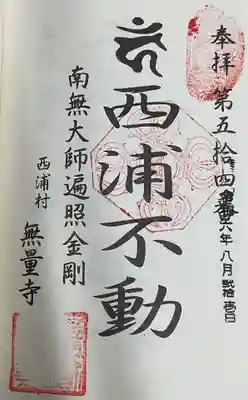 奉拝
第五拾四番
六年八月弐拾壱日
西浦不動
南無大師遍照金剛
西浦村
無量寺